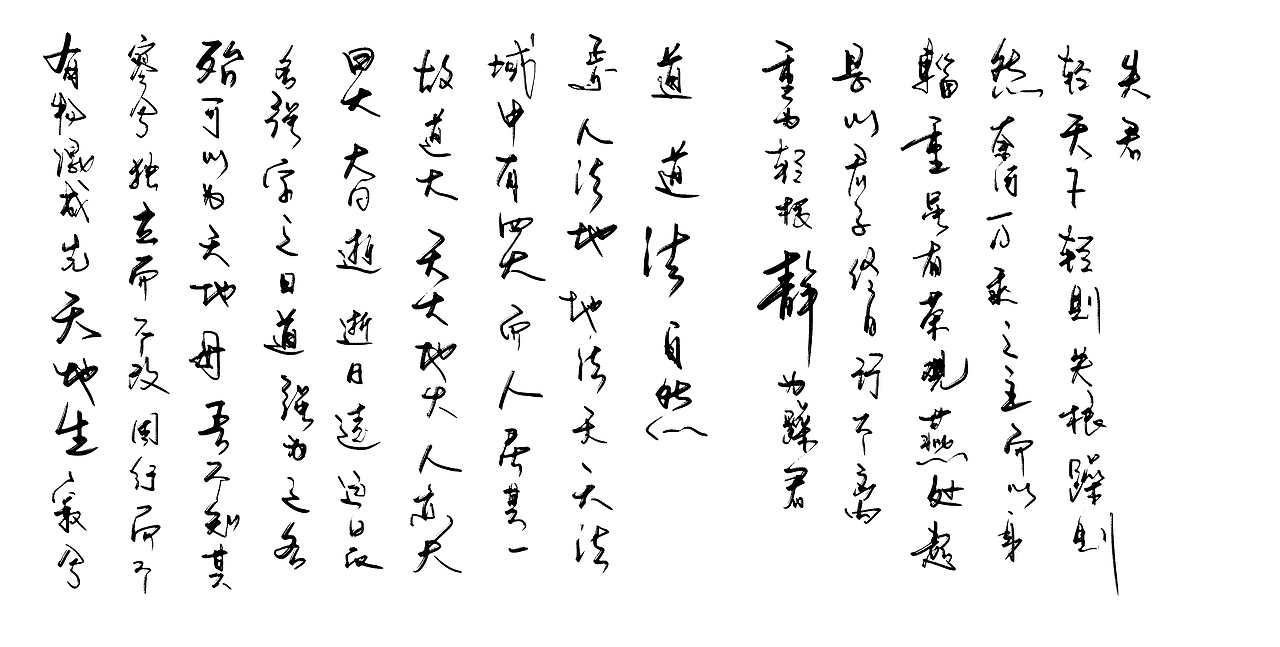 有物混成先天地生寂兮
寥兮独立而不改周行而不
殆可以为天地母吾不知其
名强字之曰道强为之名
曰大大曰逝逝曰远远曰反
故道大天大地大人亦大
域中有四大而人居其一
焉人法地地法天天法
道道法自然
重为轻根静为躁君
是以君子终日行不离
辎重虽有荣观燕处超
然奈何万乘之主而以身
轻天下轻则失根躁则
失君